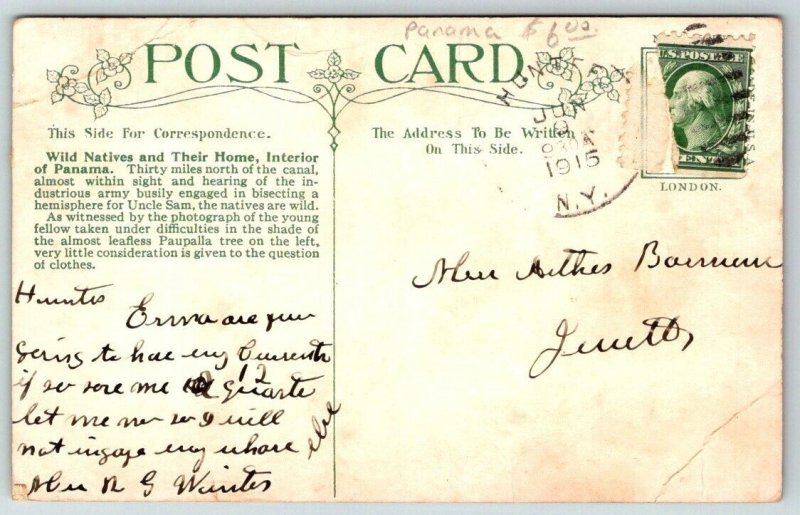 Panama $6.00
POST CARD
This Side For Correspondence.
The Address To Be Written
On This Side.
Wild Natives and Their Home, Interior
of Panama. Thirty miles north of the canal,
almost within sight and hearing of the in-
dustrious army busily engaged in bisecting a
hemisphere for Uncle Sam, the natives are wild.
As witnessed by the photograph of the young
fellow taken under difficulties in the shade of
the almost leafless Paupalla tree on the left,
very little consideration is given to the question
of clothes.
JUN
1915
N.Y.
U.S. POSTAGE
LONDON.
Erma are you
going to have any Currents
if so sore me 12 quarts
let me no so I will
not ingage any whare else
R G Winters